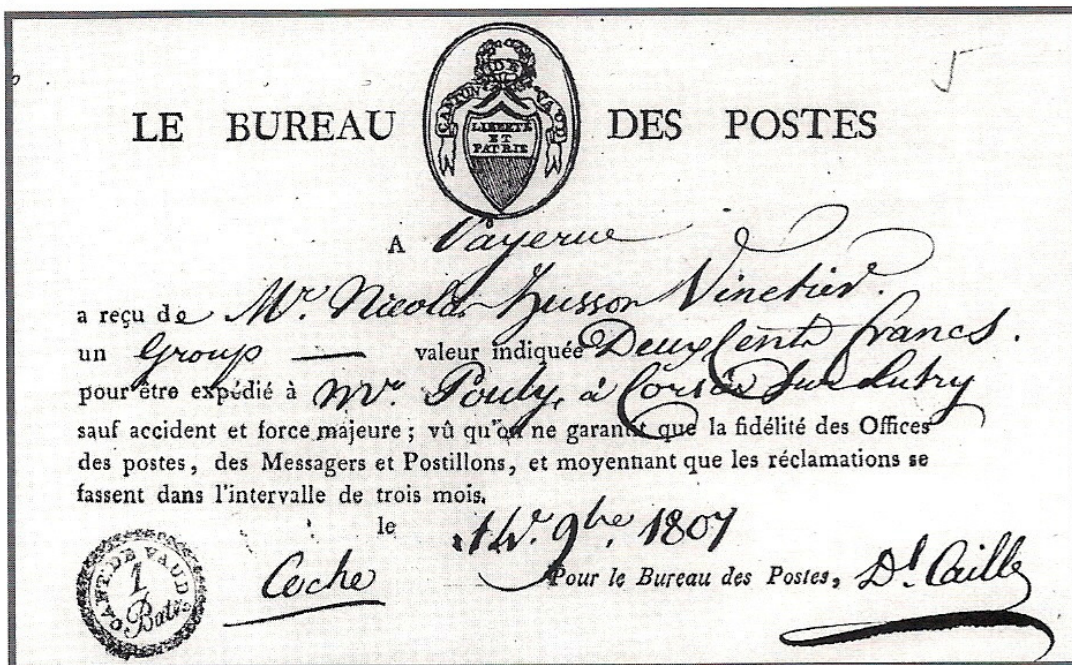 LE BUREAU DES POSTES
CANTON DE VAUD
LIBERTÉ
ET
PATRIE
A Payerne
a reçu de Mr. Nicolas Husson
un Group — valeur indiquée Deux Cents francs.
pour être expédié à Mr. Pouly, à Corsier sur Lutry
sauf accident et force majeure; vû qu'on ne garantit que la fidélité des Offices
des postes, des Messagers et Postillons, et moyennant que les réclamations se
fassent dans l'intervalle de trois mois.
le 9bre. 1807
Coche
Pour le Bureau des Postes, Dl. Caille
CANT. DE VAUD
1
Batz